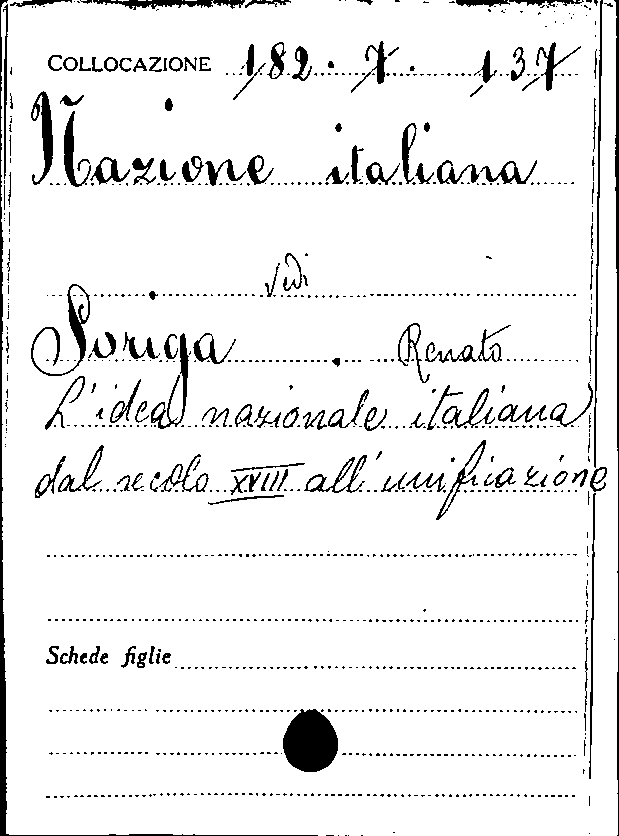 COLLOCAZIONE 182. 7. 137
Nazione italiana
Vedi
Soriga Renato
L'idea nazionale italiana
dal secolo XVIII all'unificazione
Schede figlie